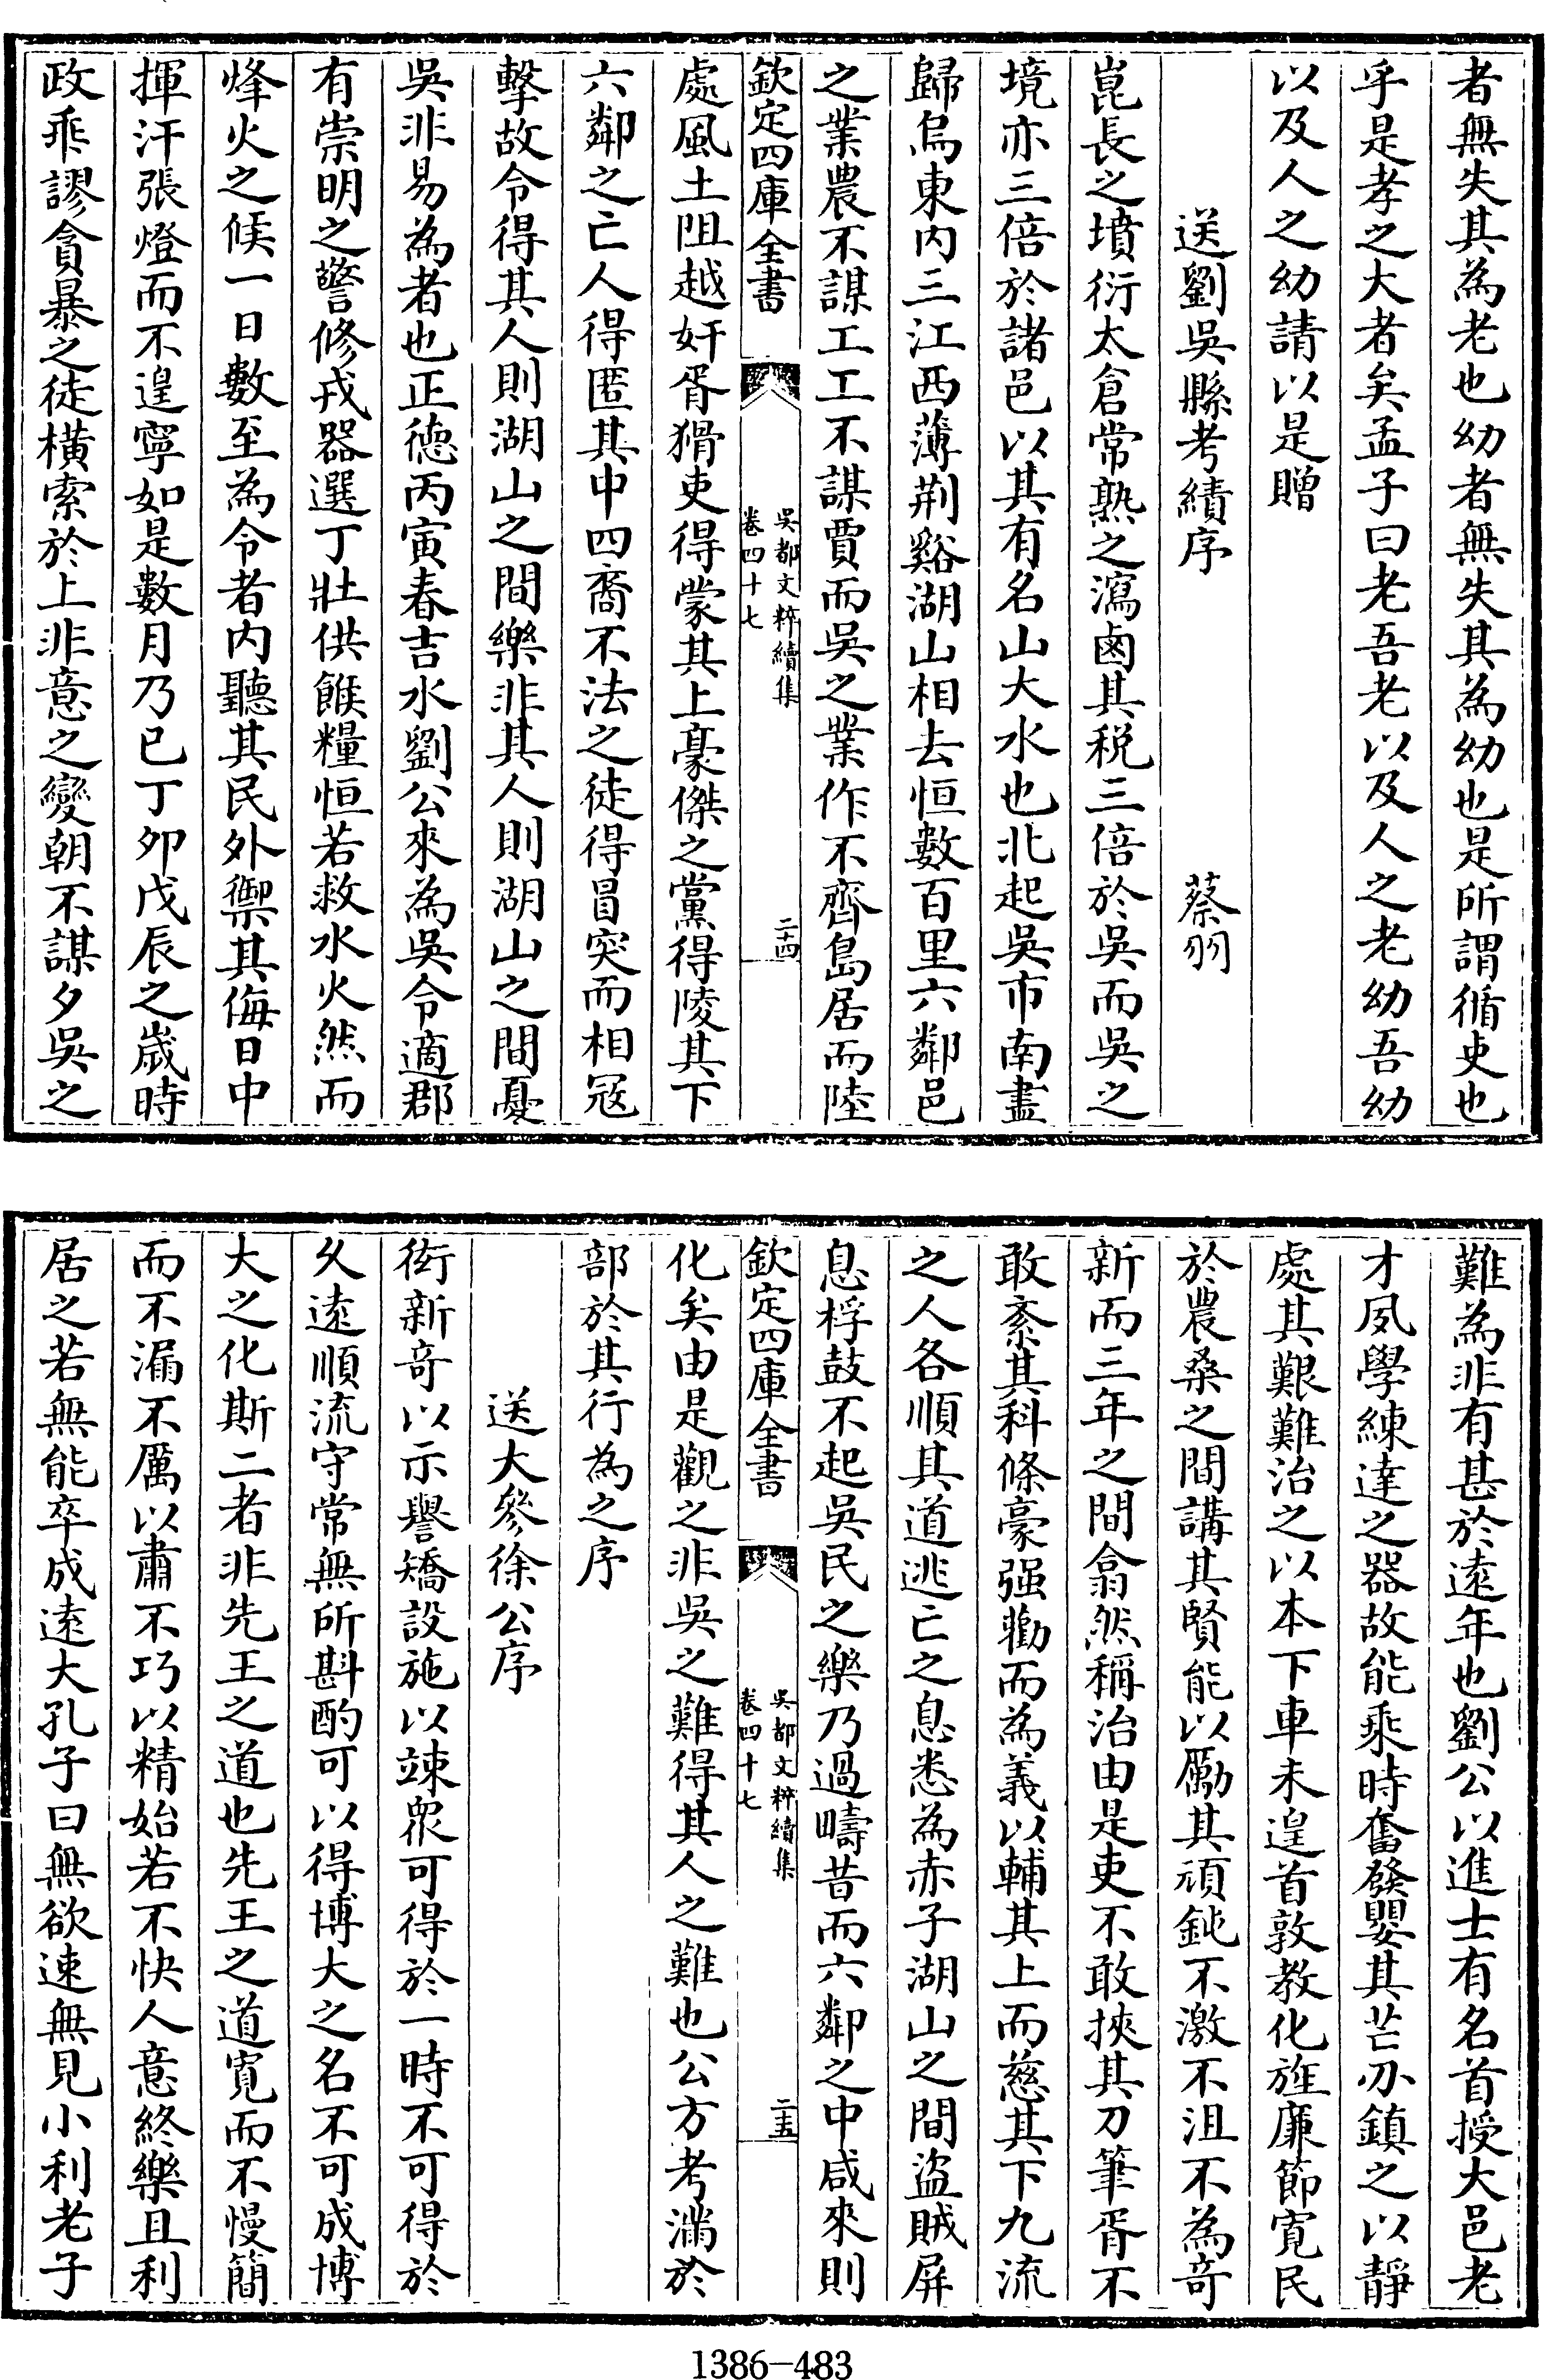 者無失其為老也幼者無失其為幼也是所謂循吏也
乎是孝之大者矣孟子曰老吾老以及人之老幼吾幼
以及人之幼請以是贈
送劉吳縣考績序 蔡羽
崑長之墳衍太倉常熟之瀉鹵其税三倍於吳而吳之
境亦三倍於諸邑以其有名山大水也北起吳市南盡
歸烏東内三江西薄荆谿湖山相去恒數百里六鄰邑
之業農不謀工工不謀賈而吳之業作不齊島居而陸
欽定四庫全書
吳都文粹續集
卷四十七
二十四
處風土阻越奸胥猾吏得蒙其上豪傑之黨得陵其下
六鄰之亡人得匿其中四裔不法之徒得冒突而相冦
擊故令得其人則湖山之間樂非其人則湖山之間憂
吳非易為者也正徳丙寅春吉水劉公來為吳令適郡
有崇明之警修戎器選丁壯供餱糧恒若救水火然而
烽火之候一日數至為令者内聽其民外禦其侮日中
揮汗張燈而不遑寧如是數月乃已丁夘戊辰之嵗時
政乖謬貪暴之徒横索於上非意之變朝不謀夕吳之
難為非有甚於逺年也劉公以進士有名首授大邑老
才夙學練達之器故能乘時奮發嬰其芒刅鎮之以靜
處其艱難治之以本下車未遑首敦教化旌廉節寛民
於農桑之間講其賢能以勵其頑鈍不激不沮不為竒
新而三年之間翕然稱治由是吏不敢挾其刀筆胥不
敢紊其科條豪强勸而為義以輔其上而慈其下九流
之人各順其道逃亡之息悉為赤子湖山之間盜賊屏
息桴鼓不起吳民之樂乃過疇昔而六鄰之中咸來則
欽定四庫全書
吳都文粹續集
卷四十七
二十五
化矣由是觀之非吳之難得其人之難也公方考滿於
部於其行為之序
送大參徐公序
衒新竒以示譽矯設施以竦衆可得於一時不可得於
乆逺順流守常無所斟酌可以得博大之名不可成博
大之化斯二者非先王之道也先王之道寛而不慢簡
而不漏不厲以肅不巧以精始若不快人意終樂且利
居之若無能卒成逺大孔子曰無欲速無見小利老子
1386-483